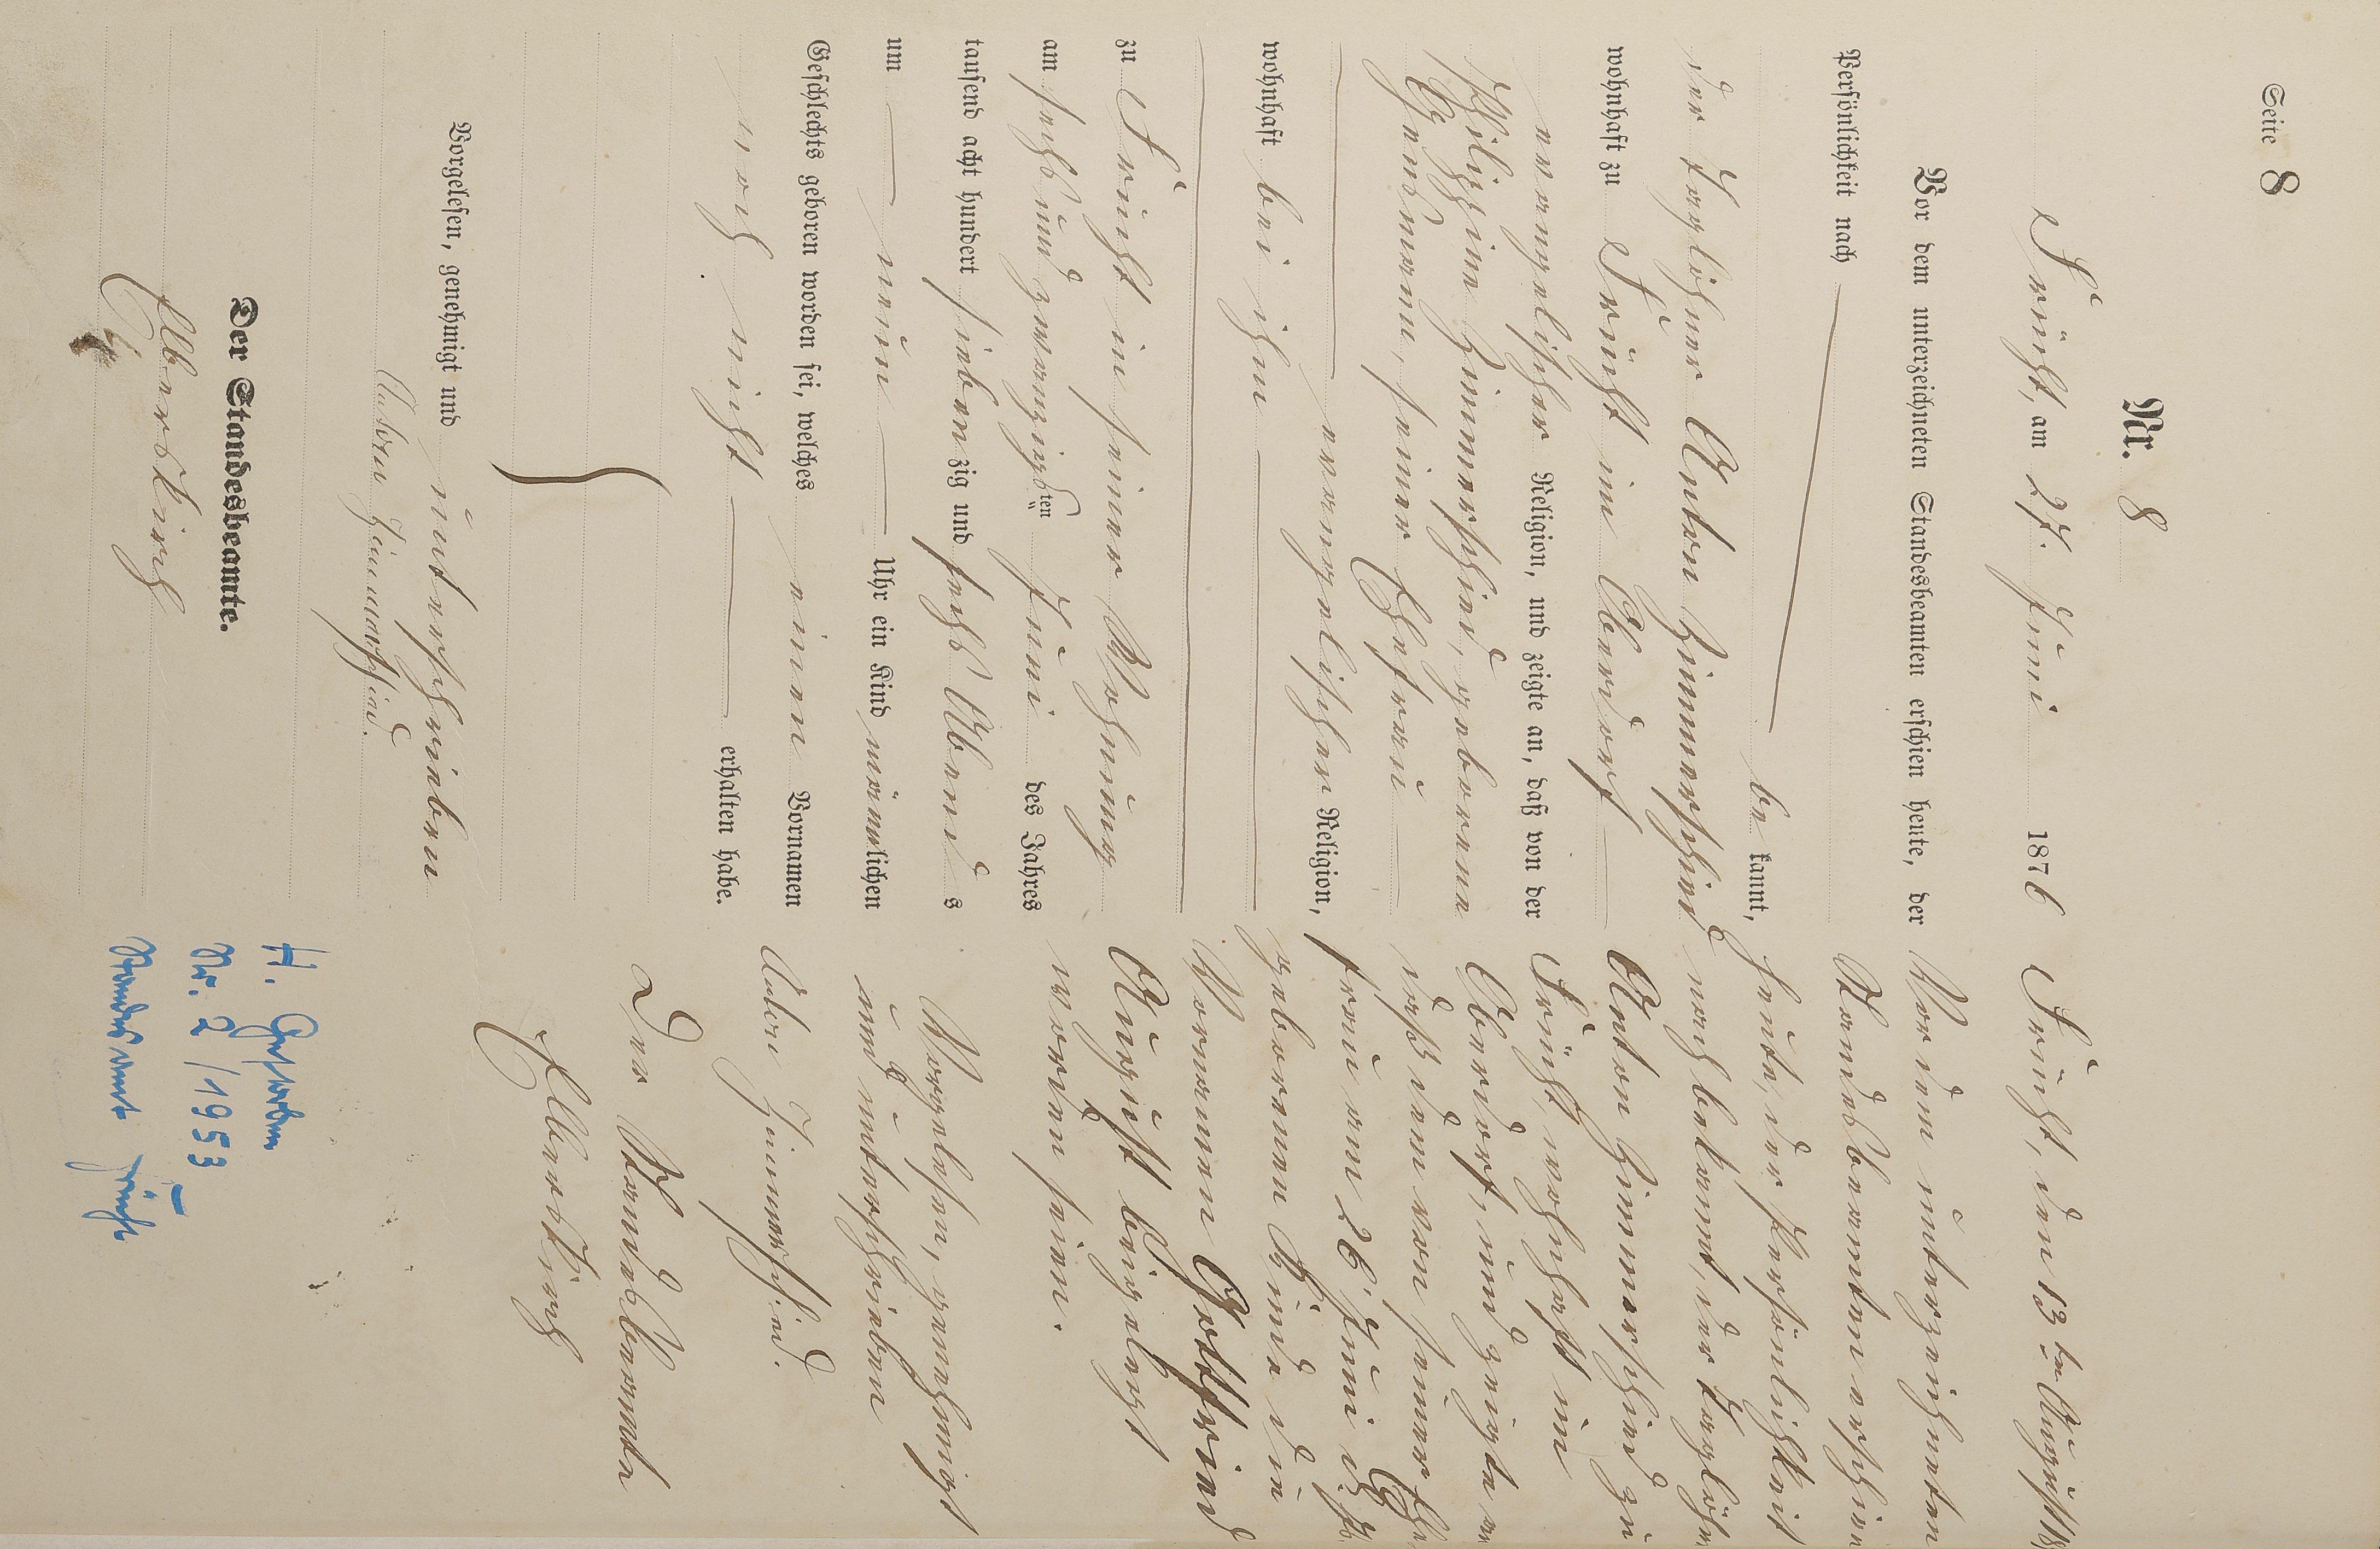 Seite 8
Nr. 8
Frücht, am 27. Juni 1876
Vor dem unterzeichneten Standesbeamten erschien heute, der
Persönlichkeit nach
be kannt,
der Taglöhner Anton Zimmerschied
wohnhaft zu Frücht im Oberdorf
evangelischer Religion, und zeigte an, daß von der
Philippine Zimmerschied, geborene
, seiner Ehefrau
evangelischen Religion,
wohnhaft bei ihm
zu Frücht in seiner Wohnung
am sechs und zwanzigsten Juni des Jahres
tausend acht hundert siebenzig und sechs Abends
um neun Uhr ein Kind männlichen
Geschlechts geboren worden sei, welches einen Vornamen
noch nicht erhalten habe.
Vorgelesen, genehmigt und unterschrieben
Anton Zimmerschied.
Der Standesbeamte.
Frücht, den 13ten August
Vor dem unterzeichneten
Standesbeamten erschien
heute, der Persönlichkeit
nach bekannt, der Taglöhn
Anton Zimmerschied zu
Frücht, wohnhaft im
Oberdorf, und zeigte an
daß dem von seiner Ehe
frau am 26. Juni d. Js.
geborenen Kinde die
Vornamen Gottfried
August beigelegt
worden seien.
Vorgelesen, genehmigt
und unterschrieben
Anton Zimmerschied.
Der Standesbeamte
H. Gestorben
Nr. 2/1953
Standesamt Frücht